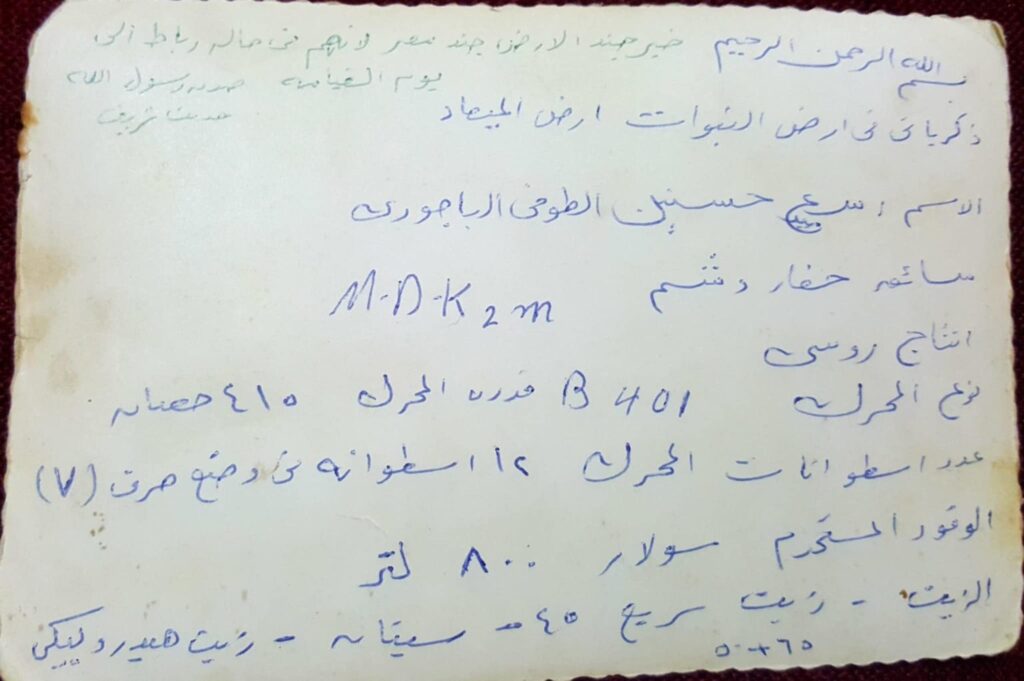 بسم الله الرحمن الرحيم خير جند الارض جند مصر لانهم فى حاله رباط الى
يوم القيامه صدق رسول الله
حديث شريف
ذكرياتى فى ارض النبوات ارض الميعاد
الاسم : حسنين الطوخى الباجورى
سائق حفار M.D.K 2 m
انتاج روسى
نوع المحرك B 401 قدره المحرك ٤١٥ حصان
عدد اسطوانات المحرك ١٢ اسطوانه فى وضع حرف (V)
الوقود المستخدم سولار ٨٠٠ لتر
الزيت - زيت سريع ٤٥ - سيتان - زيت هيدروليكى
٥٠+٦٥